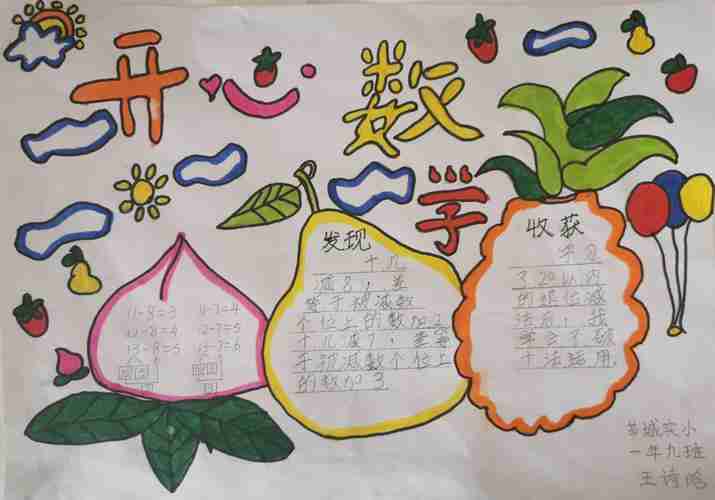 开心
数
学
发现
十几
减8，差
等于被减数
个位上的数加2
十几减7，差等
于被减数个位上
的数加3
收获
学习
了20以内
的退位减
法后，我
学会了破
十法运用
11-8=3
12-8=4
13-8=5
11-7=4
12-7=5
13-7=6
城实小
一年九班
王诗晗